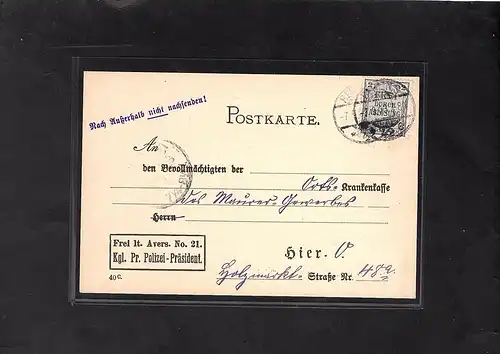 Nach Außerhalb nicht nachsenden!
POSTKARTE.
An
den Bevollmächtigten der
Orts-Krankenkasse
des Maurer-Gewerbes
Herrn
Frei lt. Avers. No. 21.
Kgl. Pr. Polizei-Präsident.
Hier. O.
Holzmarkt-Straße Nr. 48a
40c.